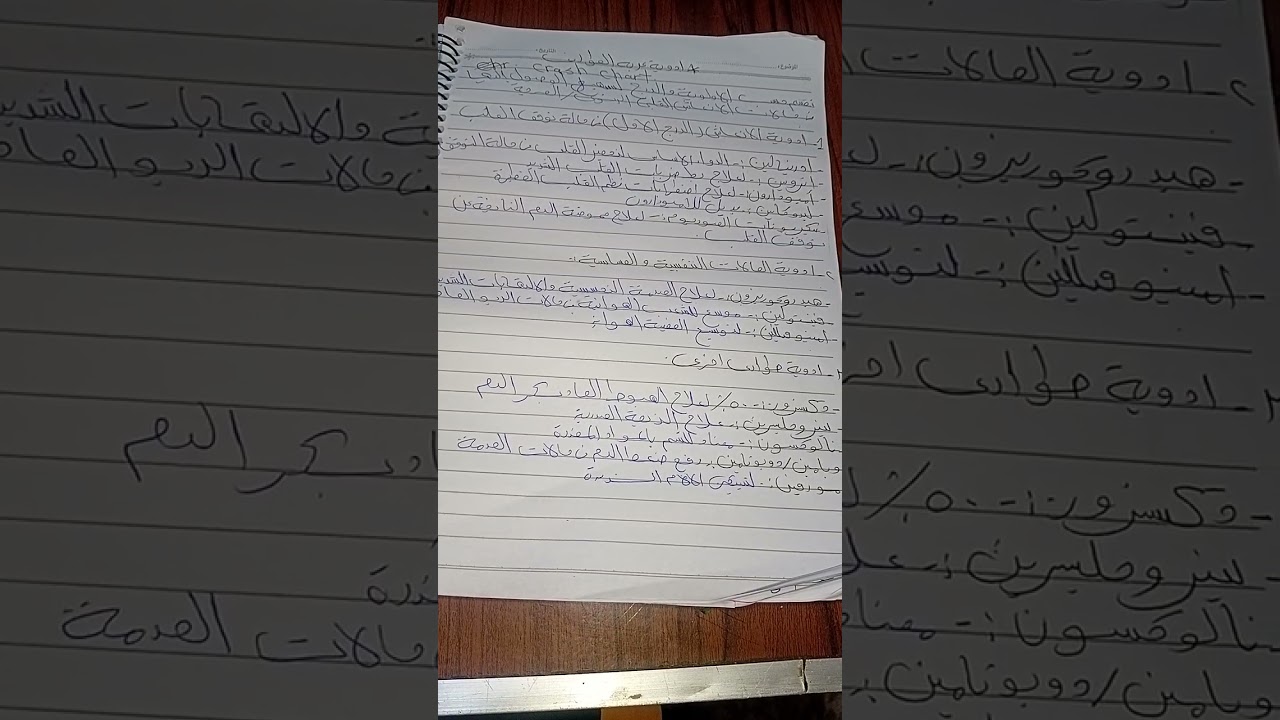 الموضوع: التاريخ:
* ادوية عربة الطوارئ
crash chart
تقسم حسب الاساسية والادراج لتسهيل الوصول اليها
في حالات الانعاش القلبي الرئوي / الصدمة
1- ادوية الانعاش (الدرج الاول) في حالة توقف القلب
- الدواء الاساسي لتحفيز القلب في حالة التوقف
- اتروبين :- لعلاج بطء ضربات القلب الشديد
- اميودارون :- لعلاج اضطرابات نظم القلب الخطرة
- ليدوكايين :- بديل للاميودارون
بيكربونات الصوديوم :- لعلاج حموضة الدم الناتجة عن
توقف القلب .
٢- ادوية الحالات التنفسية و الحساسية :-
- هيدروكورتيزون :- لعلاج الصدمة التحسسية والالتهابات الشديدة
- فنتولين :- موسع للشعب الهوائية في حالات الربو الحاد
- امينوفيلين :- لتوسيع القصبة الهوائية
٣- ادوية طوارئ اخرى .
- دكستروز :- ٥٠٪ لعلاج الهبوط الحاد بسكر الدم
- نيتروجليسرين :- علاج الذبحة الصدرية
- نالوكسون :- مضاد للتسمم بالمواد المخدرة
دوبامين / دوبوتامين :- رفع ضغط الدم في حالات الصدمة
- مورفين :- لتسكين الالام الشديدة